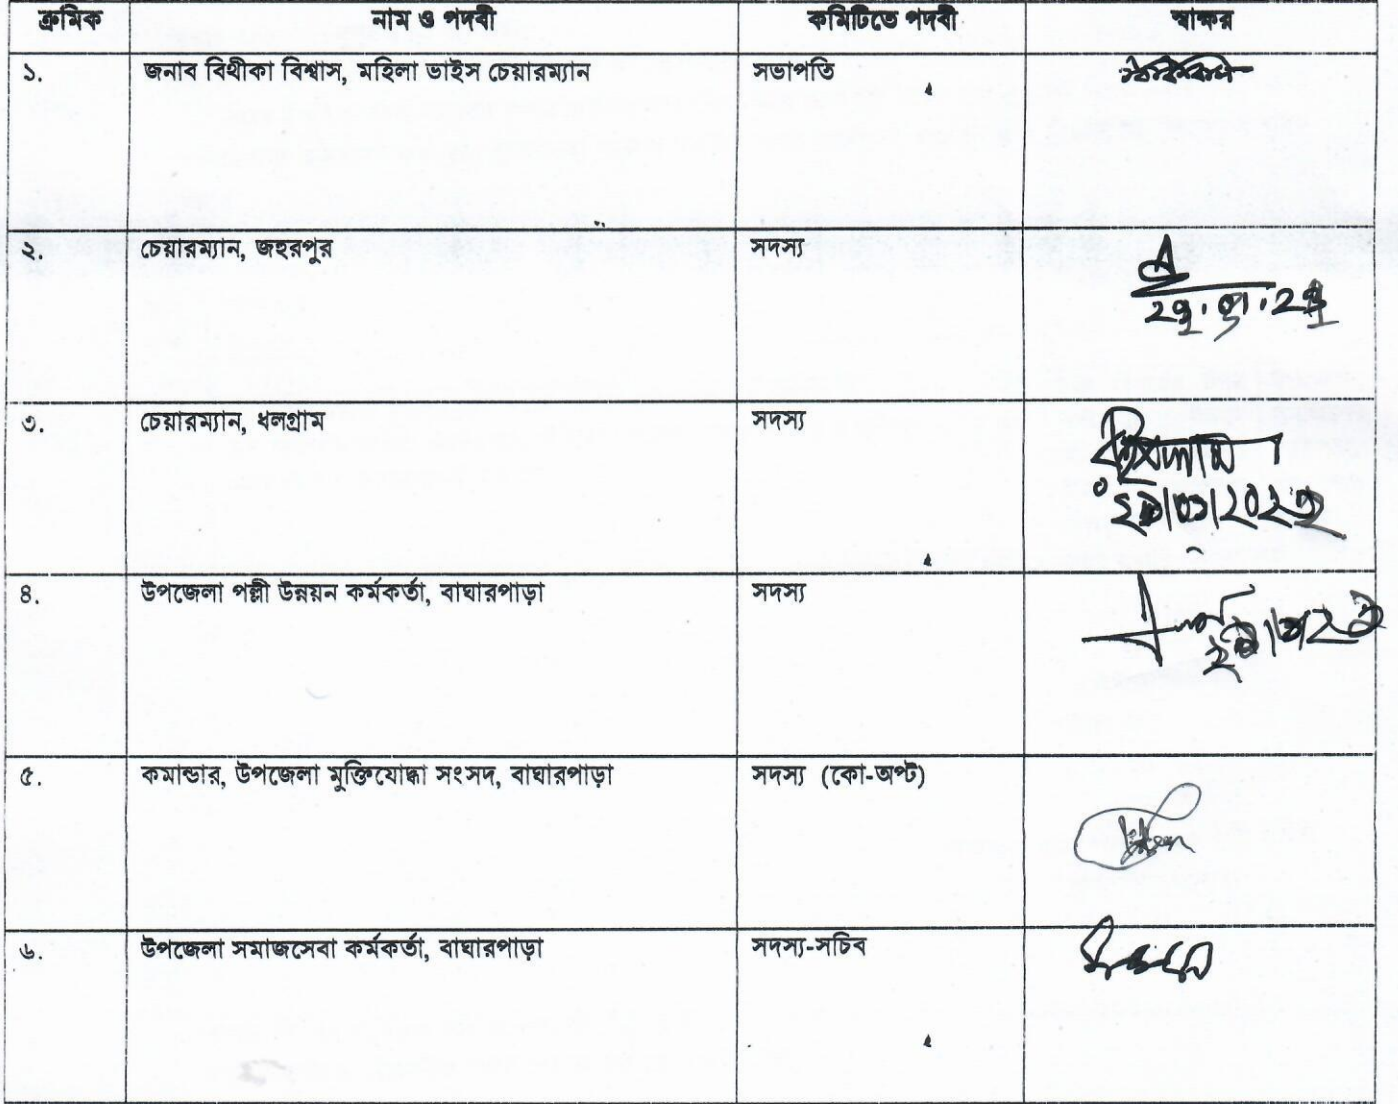 ক্রমিক নাম ও পদবী কমিটিতে পদবী স্বাক্ষর
১. জনাব বিথীকা বিশ্বাস, মহিলা ভাইস চেয়ারম্যান সভাপতি
২. চেয়ারম্যান, জহুরপুর সদস্য
৩. চেয়ারম্যান, ধলগ্রাম সদস্য
৪. উপজেলা পল্লী উন্নয়ন কর্মকর্তা, বাঘারপাড়া সদস্য
৫. কমান্ডার, উপজেলা মুক্তিযোদ্ধা সংসদ, বাঘারপাড়া সদস্য (কো-অপ্ট)
৬. উপজেলা সমাজসেবা কর্মকর্তা, বাঘারপাড়া সদস্য-সচিব